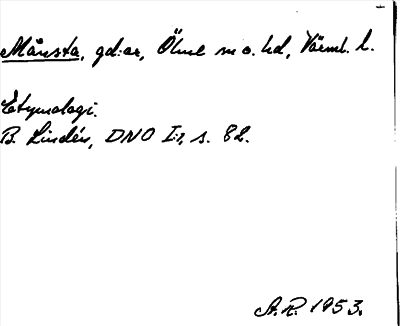 Månsta, gd:ar, Ölme sn o. hd, Värml. l.
Etymologi.
B. Lindén, DNO I:1, s. 82.
A.R. 1953.